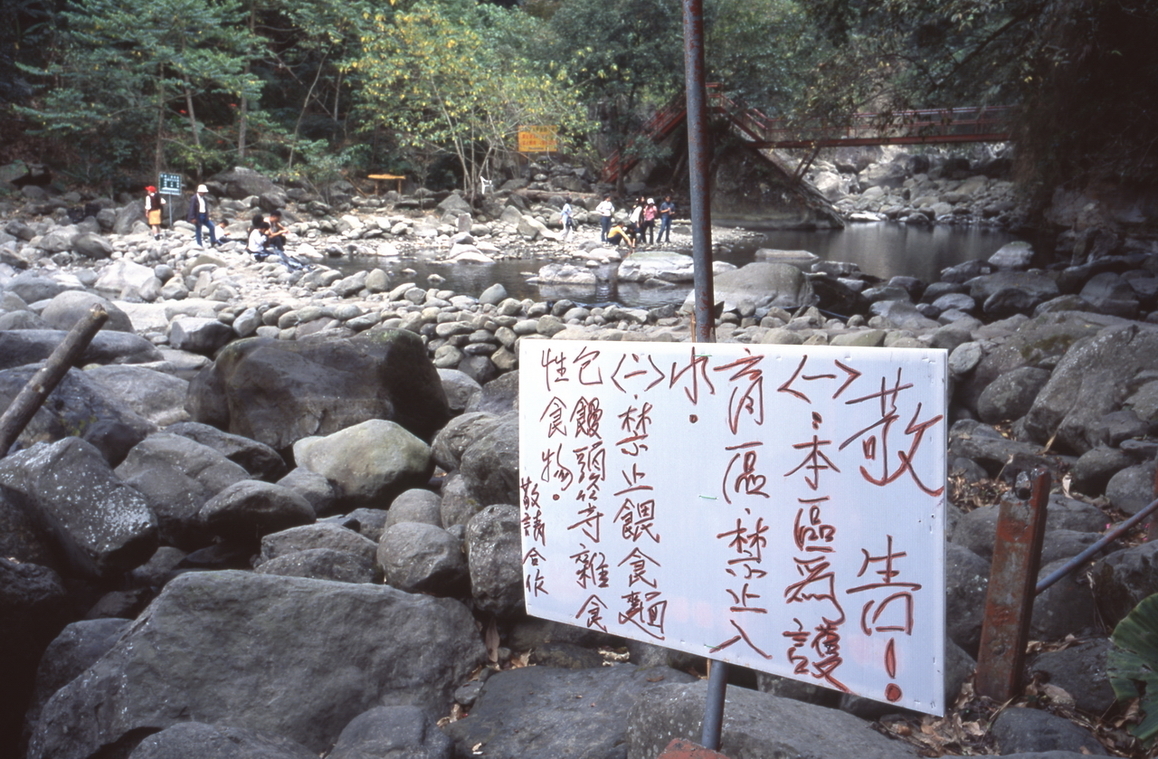 敬告!
<一>:本區為護
育區.禁止入
水.
<二>.禁止餵食麵
包饅頭等雜食
性食物.
敬請合作